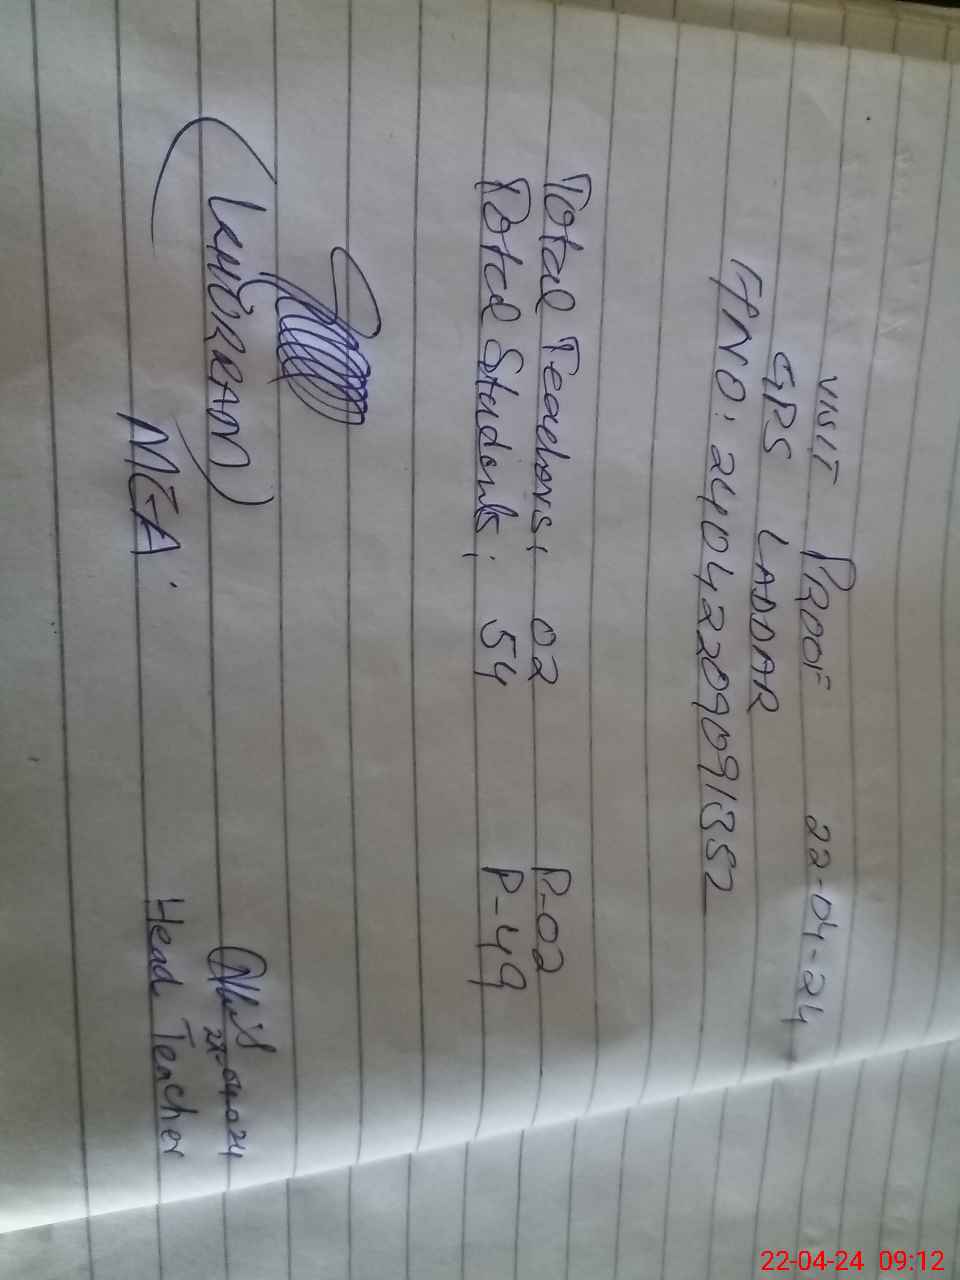 VISIT PROOF 22-04-24
GPS LADDAR
FTNO: 24042209091352
Total Teachers: 02 P-02
Total Students: 54 P-49
22-04-2024
MEA.
Head Teacher
22-04-24 09:12